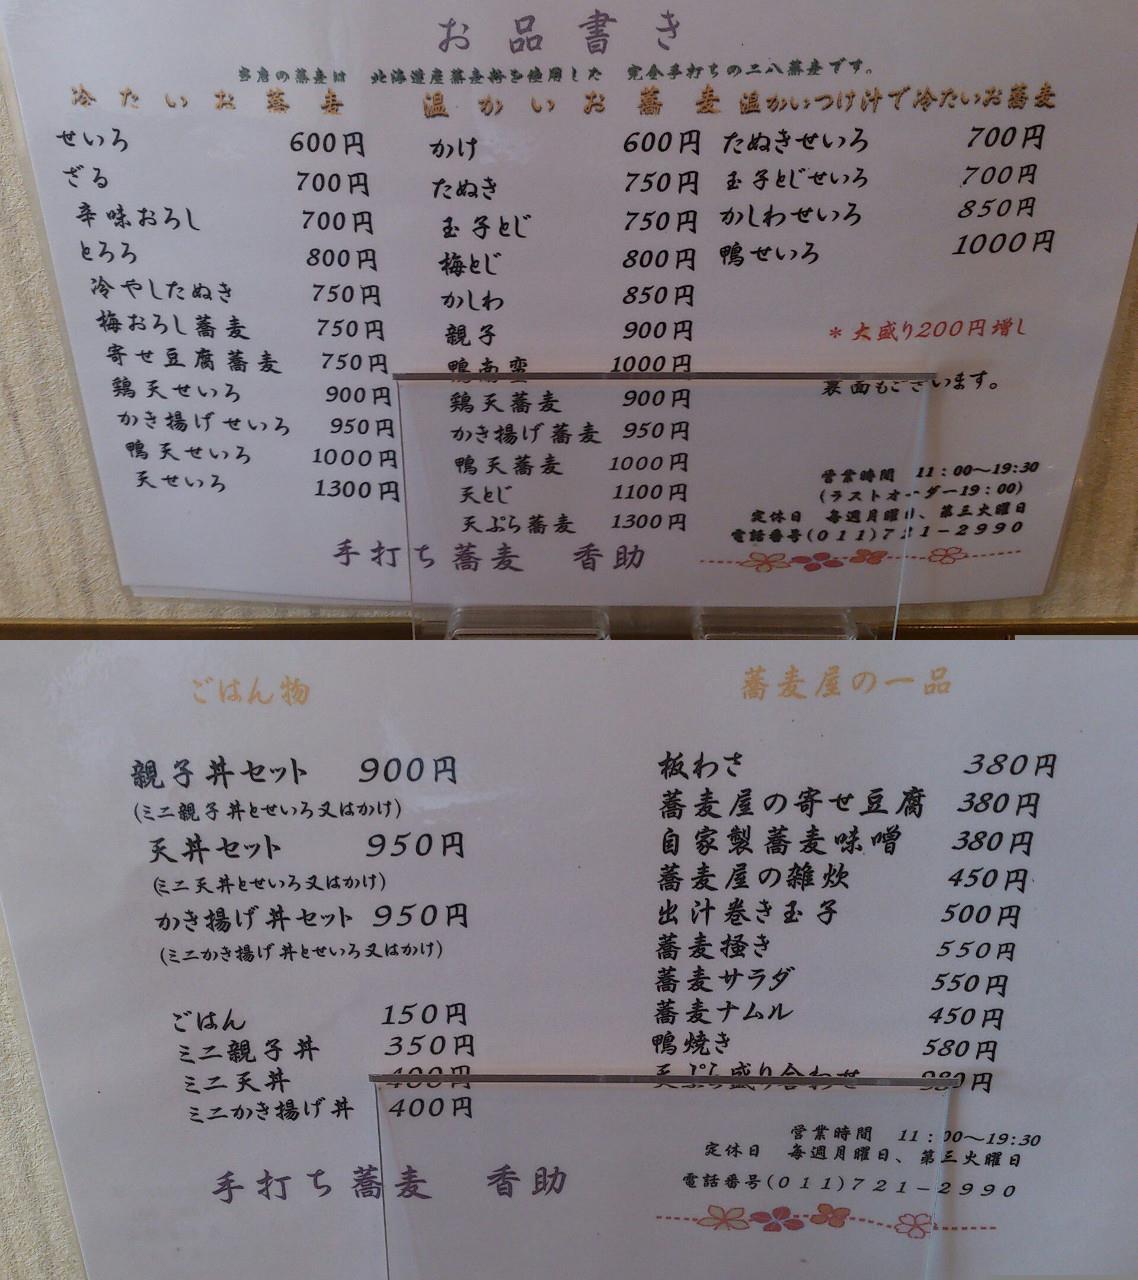 お品書き
当店の蕎麦は 北海道産蕎麦粉を使用した 完全手打ちの二八蕎麦です。
冷たいお蕎麦
せいろ 600円
ざる 700円
辛味おろし 700円
とろろ 800円
冷やしたぬき 750円
梅おろし蕎麦 750円
寄せ豆腐蕎麦 750円
鶏天せいろ 900円
かき揚げせいろ 950円
鴨天せいろ 1000円
天せいろ 1300円
温かいお蕎麦
かけ 600円
たぬき 750円
玉子とじ 750円
梅とじ 800円
かしわ 850円
親子 900円
鴨南蛮 1000円
鶏天蕎麦 900円
かき揚げ蕎麦 950円
鴨天蕎麦 1000円
天とじ 1100円
天ぷら蕎麦 1300円
温かいつけ汁で冷たいお蕎麦
たぬきせいろ 700円
玉子とじせいろ 700円
かしわせいろ 850円
鴨せいろ 1000円
＊大盛り200円増し
裏面もございます。
営業時間 11:00～19:30
(ラストオーダー19:00)
定休日 毎週月曜日、第三火曜日
電話番号(011)721-2990
手打ち蕎麦 香助
ごはん物
親子丼セット 900円
(ミニ親子丼とせいろ又はかけ)
天丼セット 950円
(ミニ天丼とせいろ又はかけ)
かき揚げ丼セット 950円
(ミニかき揚げ丼とせいろ又はかけ)
ごはん 150円
ミニ親子丼 350円
ミニ天丼 400円
ミニかき揚げ丼 400円
蕎麦屋の一品
板わさ 380円
蕎麦屋の寄せ豆腐 380円
自家製蕎麦味噌 380円
蕎麦屋の雑炊 450円
出汁巻き玉子 500円
蕎麦掻き 550円
蕎麦サラダ 550円
蕎麦ナムル 450円
鴨焼き 580円
天ぷら盛り合わせ 980円
営業時間 11:00～19:30
定休日 毎週月曜日、第三火曜日
電話番号(011)721-2990
手打ち蕎麦 香助